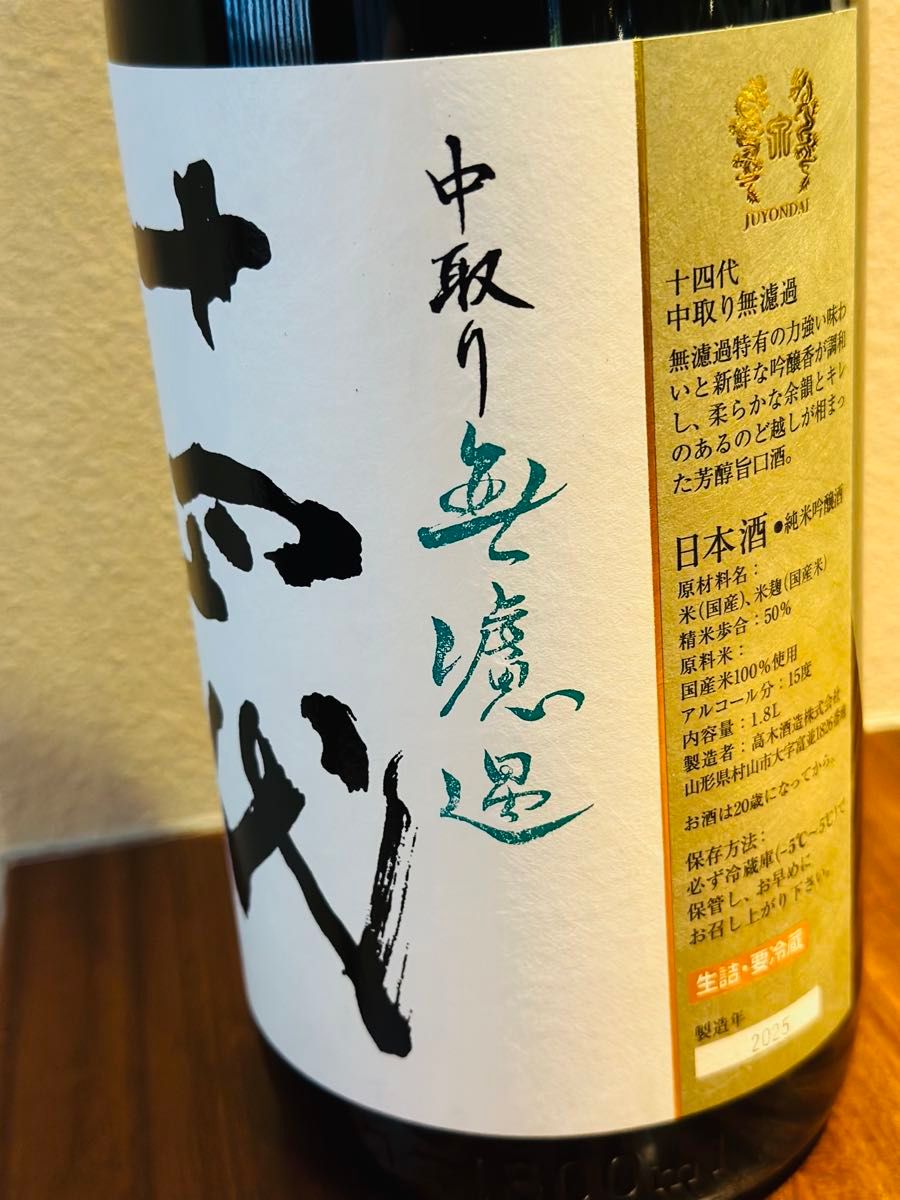 十四代
中取り
無濾過
JUYONDAI
十四代
中取り無濾過
無濾過特有の力強い味わ
いと新鮮な吟醸香が調和
し、柔らかな余韻とキレ
のあるのど越しが相まっ
た芳醇旨口酒。
日本酒 ●純米吟醸酒
原材料名：
米(国産)、米麹(国産米)
精米歩合：50%
原料米：
国産米100%使用
アルコール分：15度
内容量：1.8L
製造者：高木酒造株式会社
山形県村山市大字富並1826番地
お酒は20歳になってから。
保存方法：
必ず冷蔵庫(−5℃〜5℃)で
保管し、お早めに
お召し上がり下さい。
生詰・要冷蔵
製造年
2025
1800ml